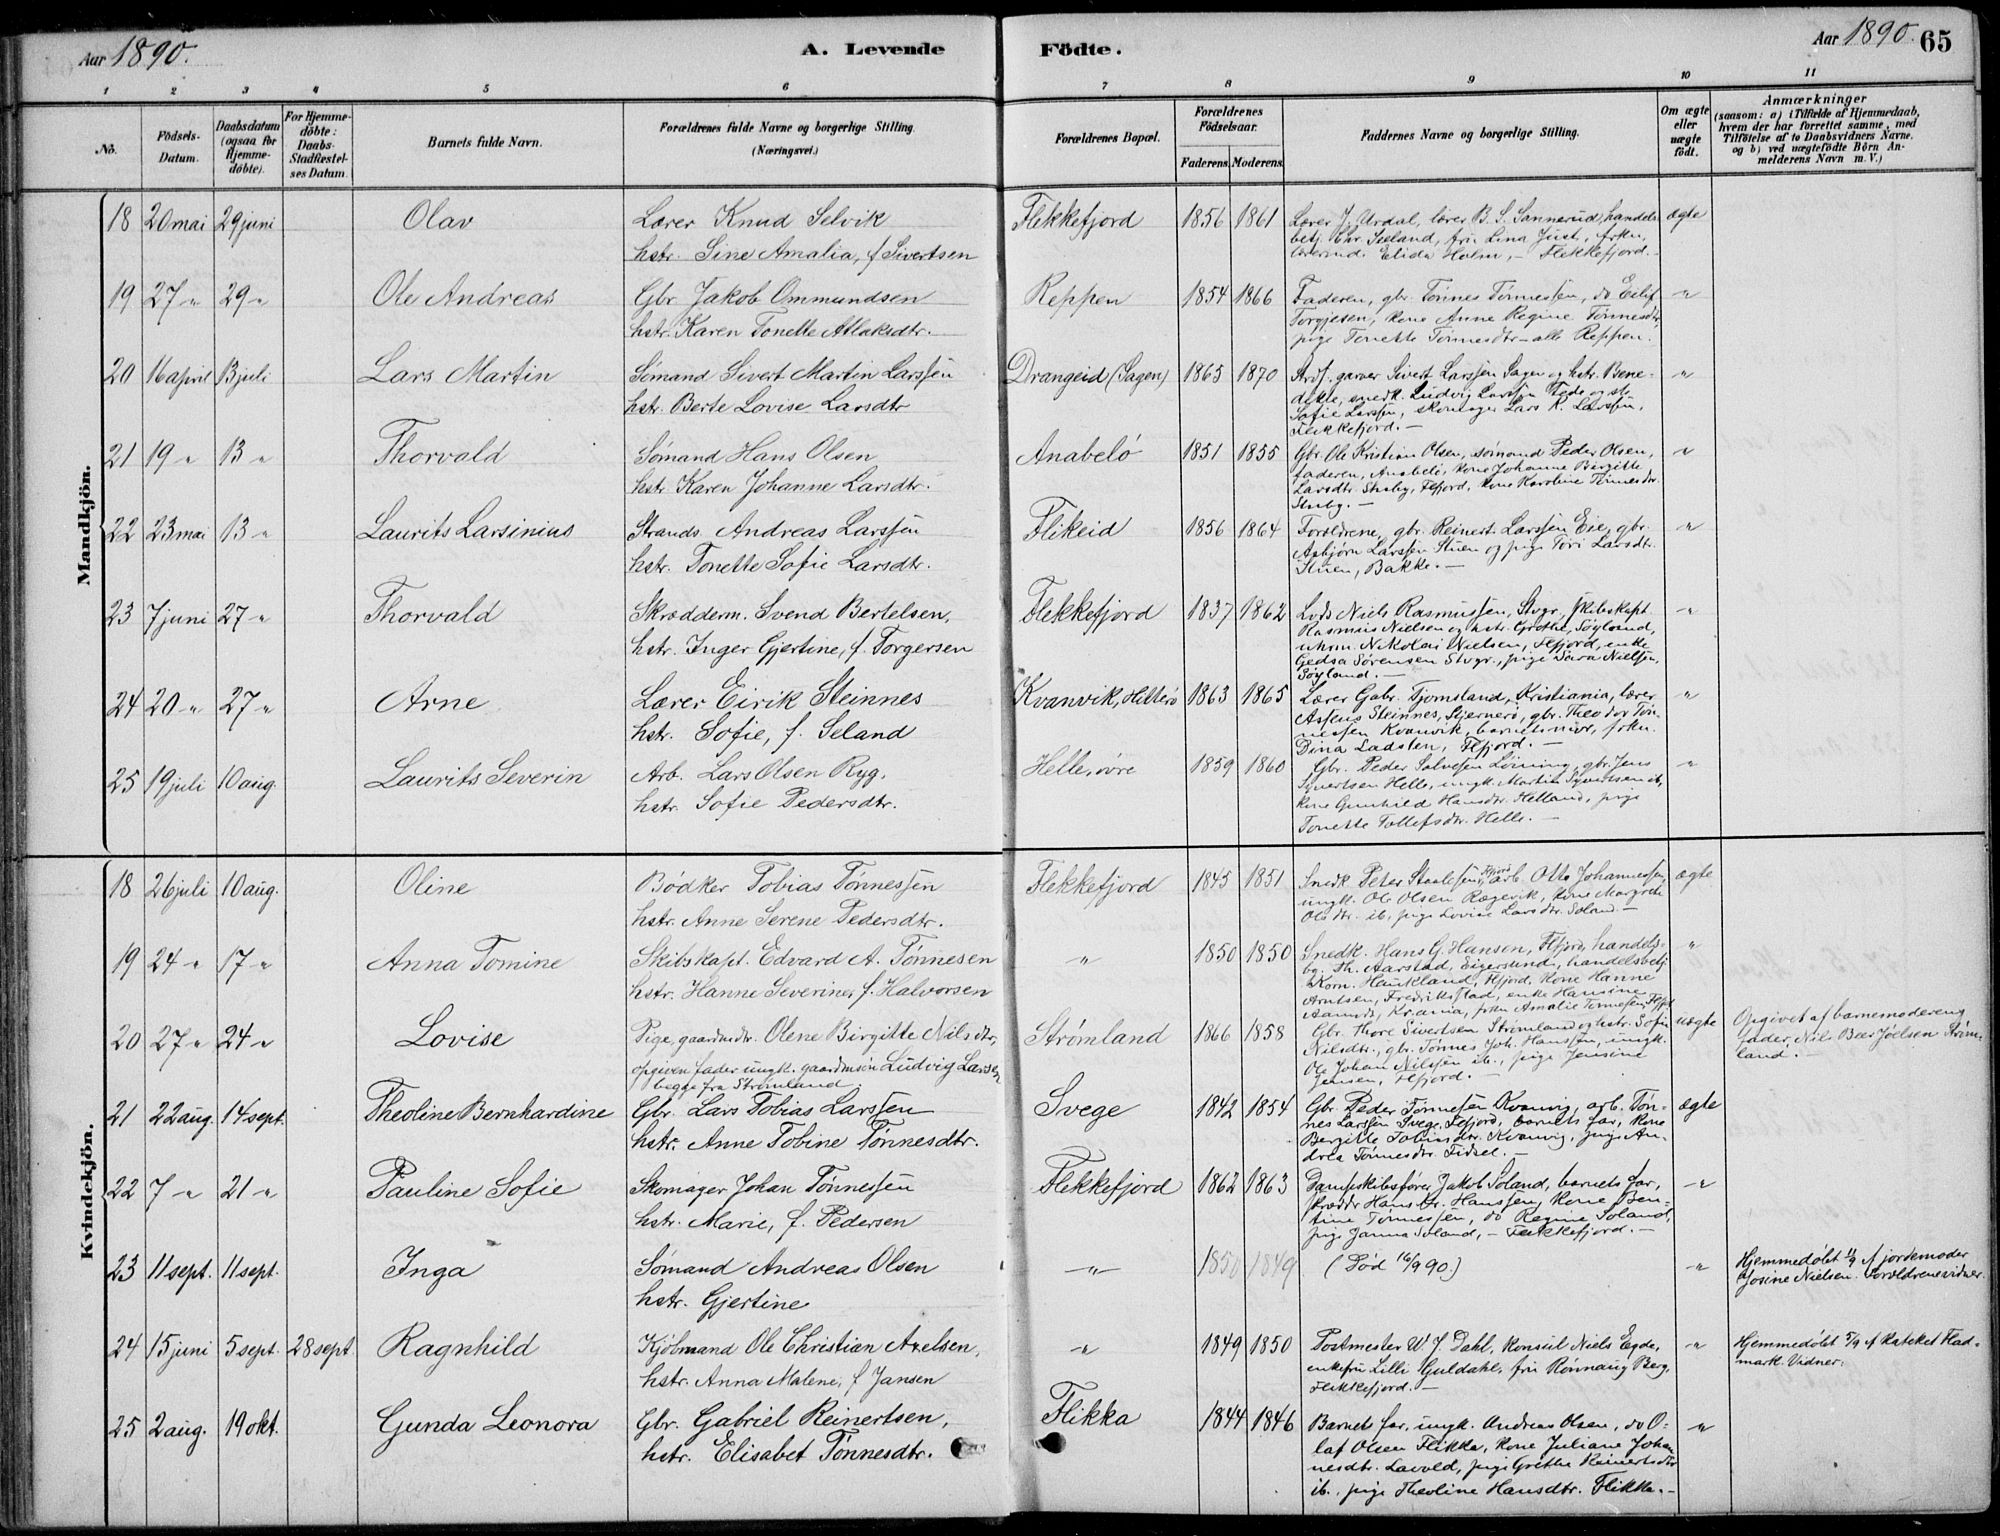 Aar 1890.
A. Levende Födte.
Aar 1890. 65
1 2 3 4 5 6 7 8 9 10 11
No.
Födsels-Datum.
Daabsdatum (ogsaa for Hjemme-döbte).
For Hjemme-döbte: Daabs-Stadfæstel-ses Datum.
Barnets fulde Navn.
Forældrenes fulde Navne og borgerlige Stilling. (Næringsvei.)
Forældrenes Bopæl.
Forældrenes Födselsaar.
Faderens. Moderens.
Faddernes Navne og borgerlige Stilling.
Om ægte eller uægte födt.
Anmærkninger (saasom: a) i Tilfælde af Hjemmedaab, hvem der har forrettet samme, med Tilföielse af to Daabsvidners Navne. og b) ved uægtefödte Börn An-melderens Navn m. V.)
Mandkjön.
18 20 mai 29 juni Olav Lærer Knud Selvik Flekkefjord 1856 1861 Lærer J. Urdal, lærer B. S. Sannerud, handels- ægte
hstr. Sine Amalia, f Sivertsen betj. Chr. Seeland, fru Lina Just, frkn.
lærerind. Elida Holm, - Flekkefjord. -
19 27 " 29 " Ole Andreas Gbr. Jakob Ommundsen Reppen 1854 1866 Faderen, gbr. Tönnes Tönnessen, do Eilif "
hstr. Karen Tonette Atlaksdtr. Torgjesen, kone Anne Regine Tönnesdtr,
pige Tonette Tönnesdtr - alle Reppen.
20 16 april 13 juli Lars Martin Sömand Sivert Martin Larssen Drangeid (Sagen) 1865 1870 garver Sivert Larssen Sagen og hstr. Bene- "
hstr. Berte Lovise Larsdtr dikte, snedk. Ludvig Larssen
Sofie Larssen, skomager Lars K. Larssen,
Flekkefjord. -
21 19 " 13 " Thorvald Sömand Hans Olsen Anabelö 1851 1855 Gbr. Ole Kristian Olsen, sömand Peder Olsen, "
hstr. Karen Johanne Larsdtr. faderen, Anabelö, kone Johanne Birgitte
Larsdtr. Stuby, Ffjord, kone Karoline Tönnesdtr
Stuby. -
22 23 mai 13 " Laurits Larsinius Strands. Andreas Larssen Flikeid 1856 1864 Forældrene, gbr. Reinert Larssen Eie, gbr. "
hstr. Tonette Sofie Larsdtr. Asbjörn Larssen Stuen og pige Tori Larsdtr.
Stuen, Bakke. -
23 7 juni 27 " Thorvald Skrædderm. Svend Bertelsen, Flekkefjord 1837 1862 Lods Niels Rasmussen, Stvgr., skibskapt. "
hstr. Inger Gjertine, f. Torgersen Rasmus Nielsen og hstr. Grethe, Söyland,
uhrm. Nikolai Nielsen, Ffjord, enke
Gedsa Sörensen Stvgr., pige Sara Nielsen,
Söyland. -
24 20 " 27 " Arne Lærer Eirik Steinnes Kvanvik, Hitterö 1863 1865 Lærer Gabr. Tjomsland, Kristiania, lærer "
hstr. Sofie, f. Seland Steinnes, Stjernerö, gbr. Theodor Tön-
nessen Kvanvik, barnets mor, frkn.
Dina Ladsten, Ffjord. -
25 19 juli 10 aug. Laurits Severin Arb. Lars Olsen Ryg. Helle, övre 1859 1860 Gbr. Peder Salvesen Löining, gbr. Jens "
hstr. Sofie Pedersdtr. Syvertsen Helle, ungk. Martin Syvertsen ib,
kone Gunhild Hansdtr. Helland, pige
Tonette Tollefsdtr. Helle. -
Kvindekjön.
18 26 juli 10 aug. Oline Bödker Tobias Tönnessen Flekkefjord 1845 1851 Snedk. Peter Staalesen, Ffjord, arb. Otto Johannessen, ægte
hstr. Anne Serene Pedersdtr. ungk. Ole Olsen Rægevik, kone Margrete
Olsdtr. ib, pige Lovise Larsdtr. Soland. -
19 24 " 17 " Anna Tomine Skibskapt. Edvard A. Tönnesen " 1850 1850 Snedk. Hans G. Hansen, Ffjord, handels- "
hstr. Hanne Severine, f. Halvorsen bg. Th. Aarstad, Egersund, handelsbetj
Korn. Haukland, Ffjord, kone Hanne
Arntsen, Fredrikstad, enke Hansine
Aamodt, Krania, frkn Amalie Tönnesen Ffjd
20 27 " 24 " Lovise Pige, gaardmdtr. Olene Birgitte Nilsdtr, Strömland 1866 1858 Gbr. Thore Sivertsen Strömland og hstr. Sofie uægte Opgivet af barnemoderens
opgiven fader ungk. gaardmsön Ludvig Larsen Nilsdtr., gbr. Tönnes Joh. Hanssen, ungk. fader, Nils Beer Jöelsen Ström-
begge fra Strömland Ole Johan Nilssen ib., pige Jensine land. -
Jensen, Ffjord. -
21 22 aug. 14 sept. Theoline Bernhardine Gbr. Lars Tobias Larssen Svege 1842 1854 Gbr. Peder Tönnessen Kvanvig, arb. Tön- ægte
hstr. Anne Tobine Tönnesdtr. nes Larssen Svege, Ffjord, barnets far, kone
Bergitte Tobiasdtr. Kvanvig, pige An-
drea Tönnesdtr. Fidsel. -
22 7 " 21 " Pauline Sofie Skomager Johan Tönnessen Flekkefjord 1862 1863 Dampskibsförer Jakob Soland, barnets far, "
hstr. Marie, f. Pedersen skrædder Hans Kr. Hanssen, kone Ben-
tine Tönnessen, do Regine Soland,
pige Janna Soland, - Flekkefjord. -
23 11 sept. 11 sept. Inga Sömand Andreas Olsen " 1850 1849 (Död 16/9 90) " Hjemmedöbt 11/9 af jordemoder
hstr. Gjertine Josine Nielsen. Forældrene vidner.
24 15 juni 5 sept. 28 sept. Ragnhild Kjöbmand Ole Christian Axelsen, " 1849 1850 Postmester W. J. Dahl, konsul Niels Egde, " Hjemmedöbt 5/9 af kateket Flad-
hstr. Anna Malene, f Jansen enkefru Lilli Guldahl, fru Rönnaug Berg, mark. Vidner:
Flekkefjord. -
25 2 aug. 19 okt. Gunda Leonora Gbr. Gabriel Reinertsen, Flikka 1844 1846 Barnet far, ungk. Andreas Olsen, do O- "
hstr. Elisabet Tönnesdtr. laf Olsen Flikka, kone Juliane Johan
nesdtr. Lavold, pige Gretha Reinertsdtr
ib., pige Theoline Hansdtr. Flikka. -